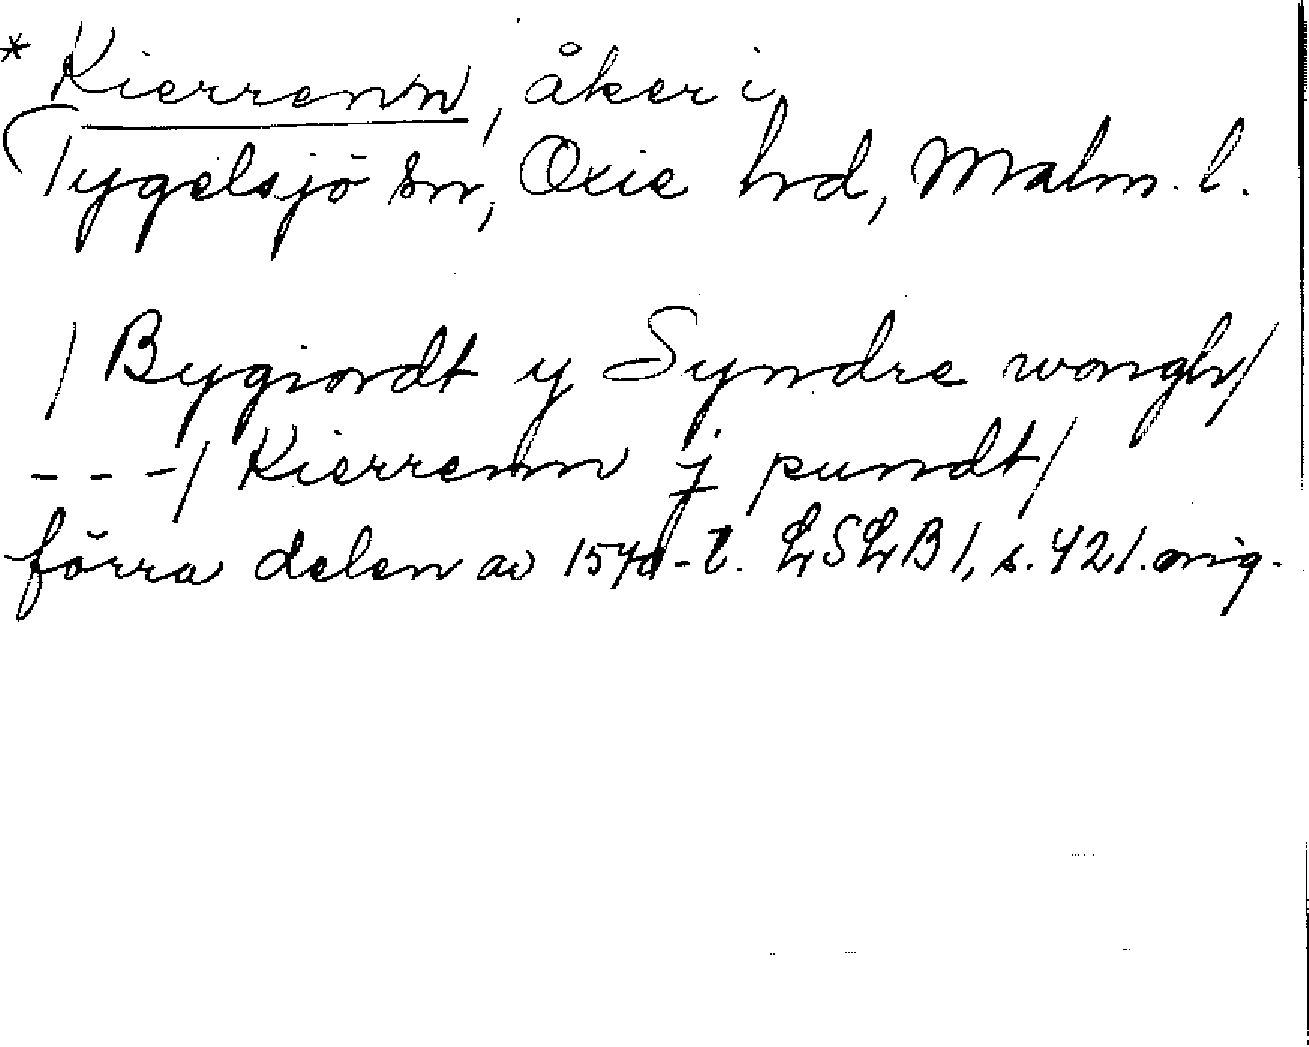 * Kierrenn, åker i
Tygelsjö sn, Oxie hd, Malm. l.
/ Bygiordt y Syndre wongh/
- - -/ Kierrenn j pundt/
förra delen av 1570-t. LSLB 1, s. 421. orig.